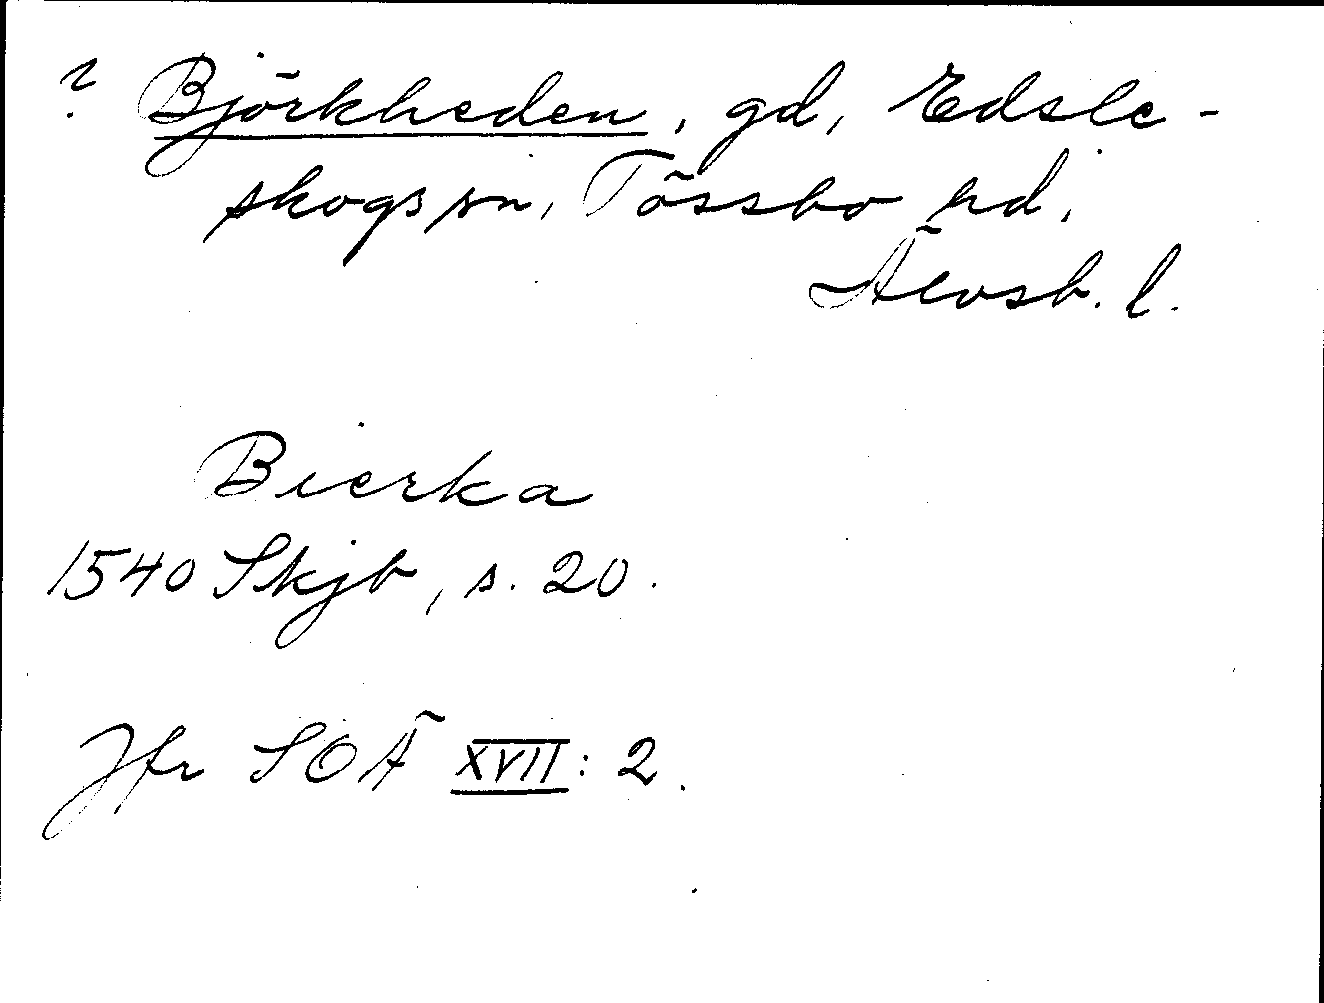 ? Björkheden, gd, Edsle-
skogs sn, Tössbo hd,
Älvsb. l.
Bierka
1540 Skjb, s. 20.
Jfr SOÄ XVII: 2.